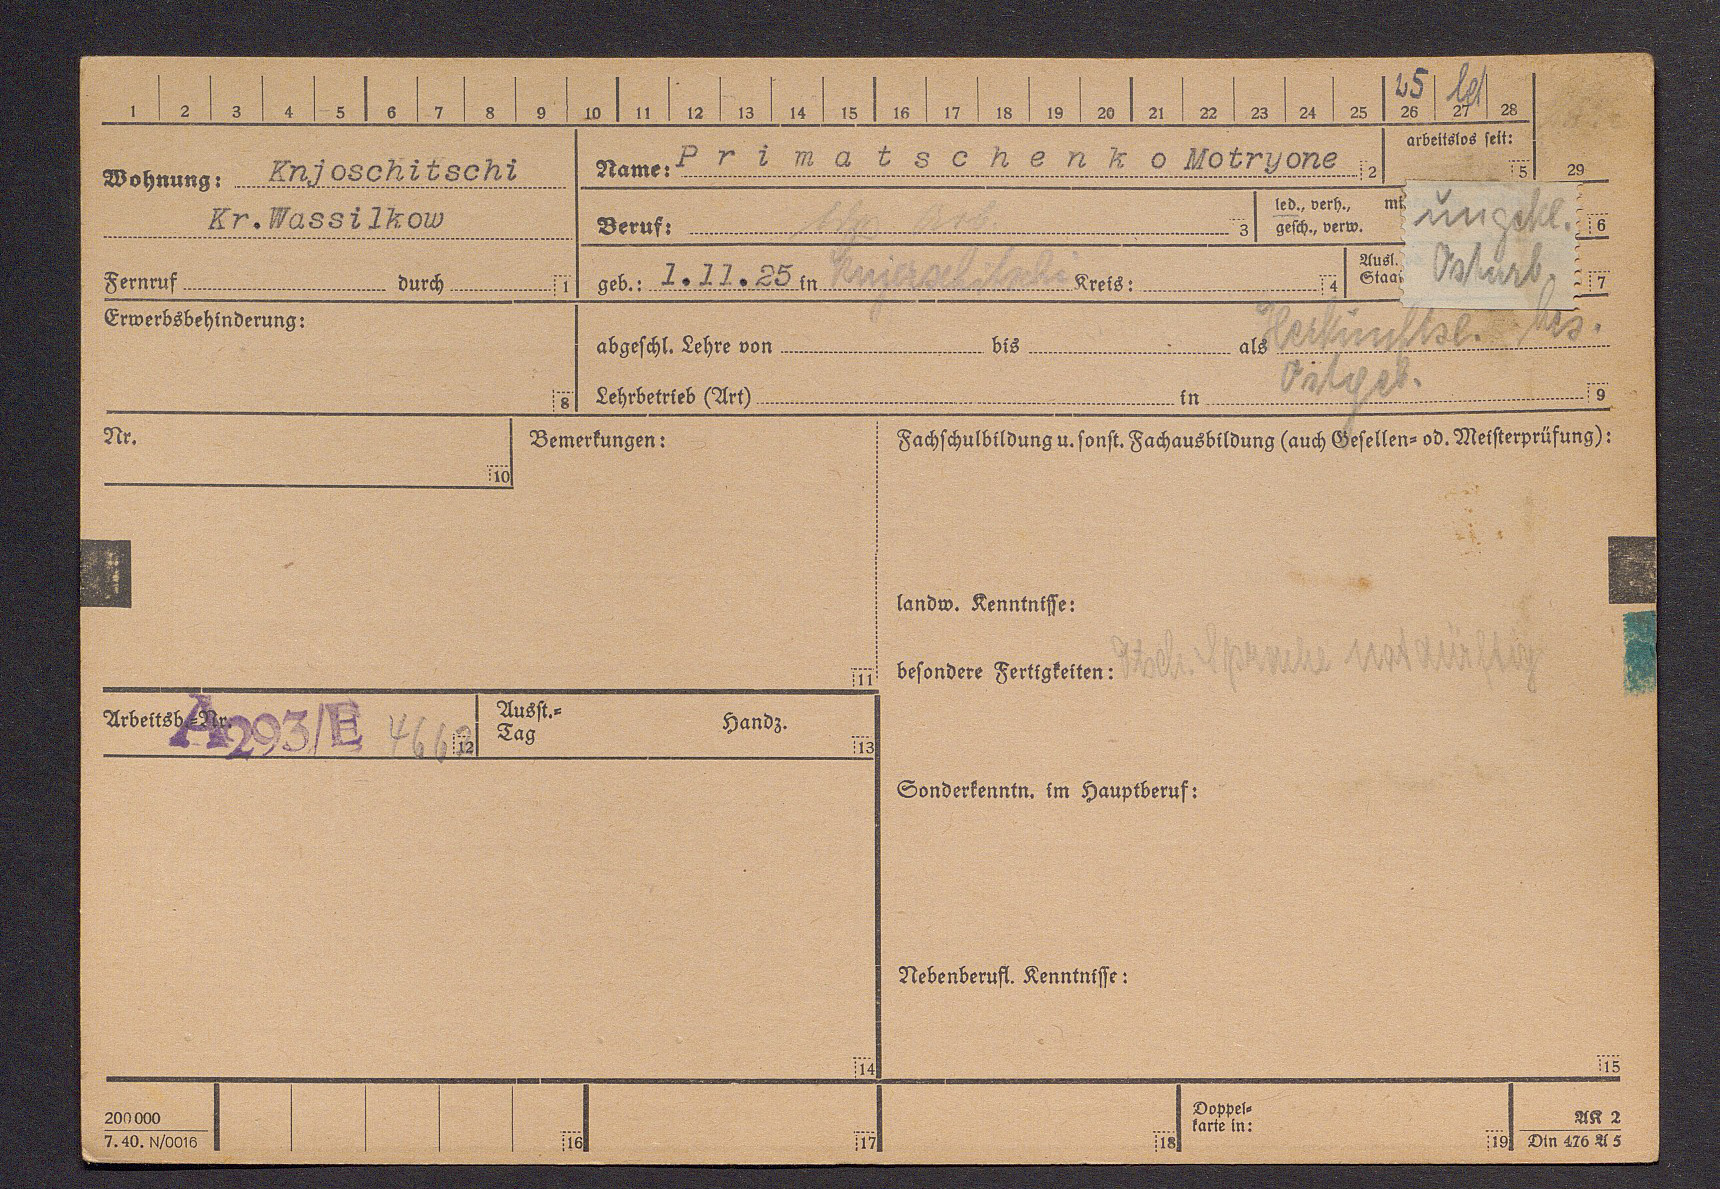 1 2 3 4 5 6 7 8 9 10 11 12 13 14 15 16 17 18 19 20 21 22 23 24 25 26 27 28
25 led
arbeitslos seit: 5 29
Wohnung: Knjoschitschi
Kr. Wassilkow
Name: Primatschenko Motryone 2
Beruf: Arb. 3
led., verh.,
gesch., verw.
ungekl.
Ostarb.
6
Fernruf durch 1
geb.: 1.11.25 in Knjoschitschi Kreis: 4
Ausl.
7
Erwerbsbehinderung: 8
abgeschl. Lehre von bis als
Herkunftsl. bes.
Ostgeb.
Lehrbetrieb (Art) in 9
Nr. 10
Bemerkungen: 11
Fachschulbildung u. sonst. Fachausbildung (auch Gesellen= od. Meisterprüfung):
landw. Kenntnisse:
besondere Fertigkeiten: Dtsch. Sprache notdürftig
Arbeitsb.=Nr. A293/E 12
Ausst.=
Tag
Handz. 13
Sonderkenntn. im Hauptberuf:
Nebenberufl. Kenntnisse:
14
15
200 000
7. 40. N/0016
16 17 18
Doppel=
karte in: 19
AK 2
Din 476 A 5